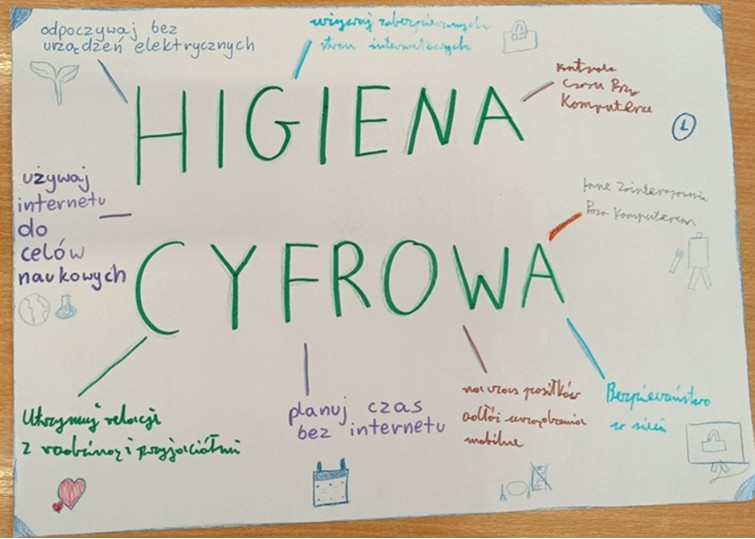 odpoczywaj bez
urządzeń elektrycznych
używaj zabezpieczonych
stron internetowych
kontrola
czasu Przy
Komputerze
L
HIGIENA
używaj
internetu
do
celów
naukowych
Inne Zainteresowania
Poza Komputerem
CYFROWA
Utrzymuj relacje
z rodziną i przyjaciółmi
planuj czas
bez internetu
na czas posiłków
odłóż urządzenia
mobilne
Bezpieczeństwo
w sieci